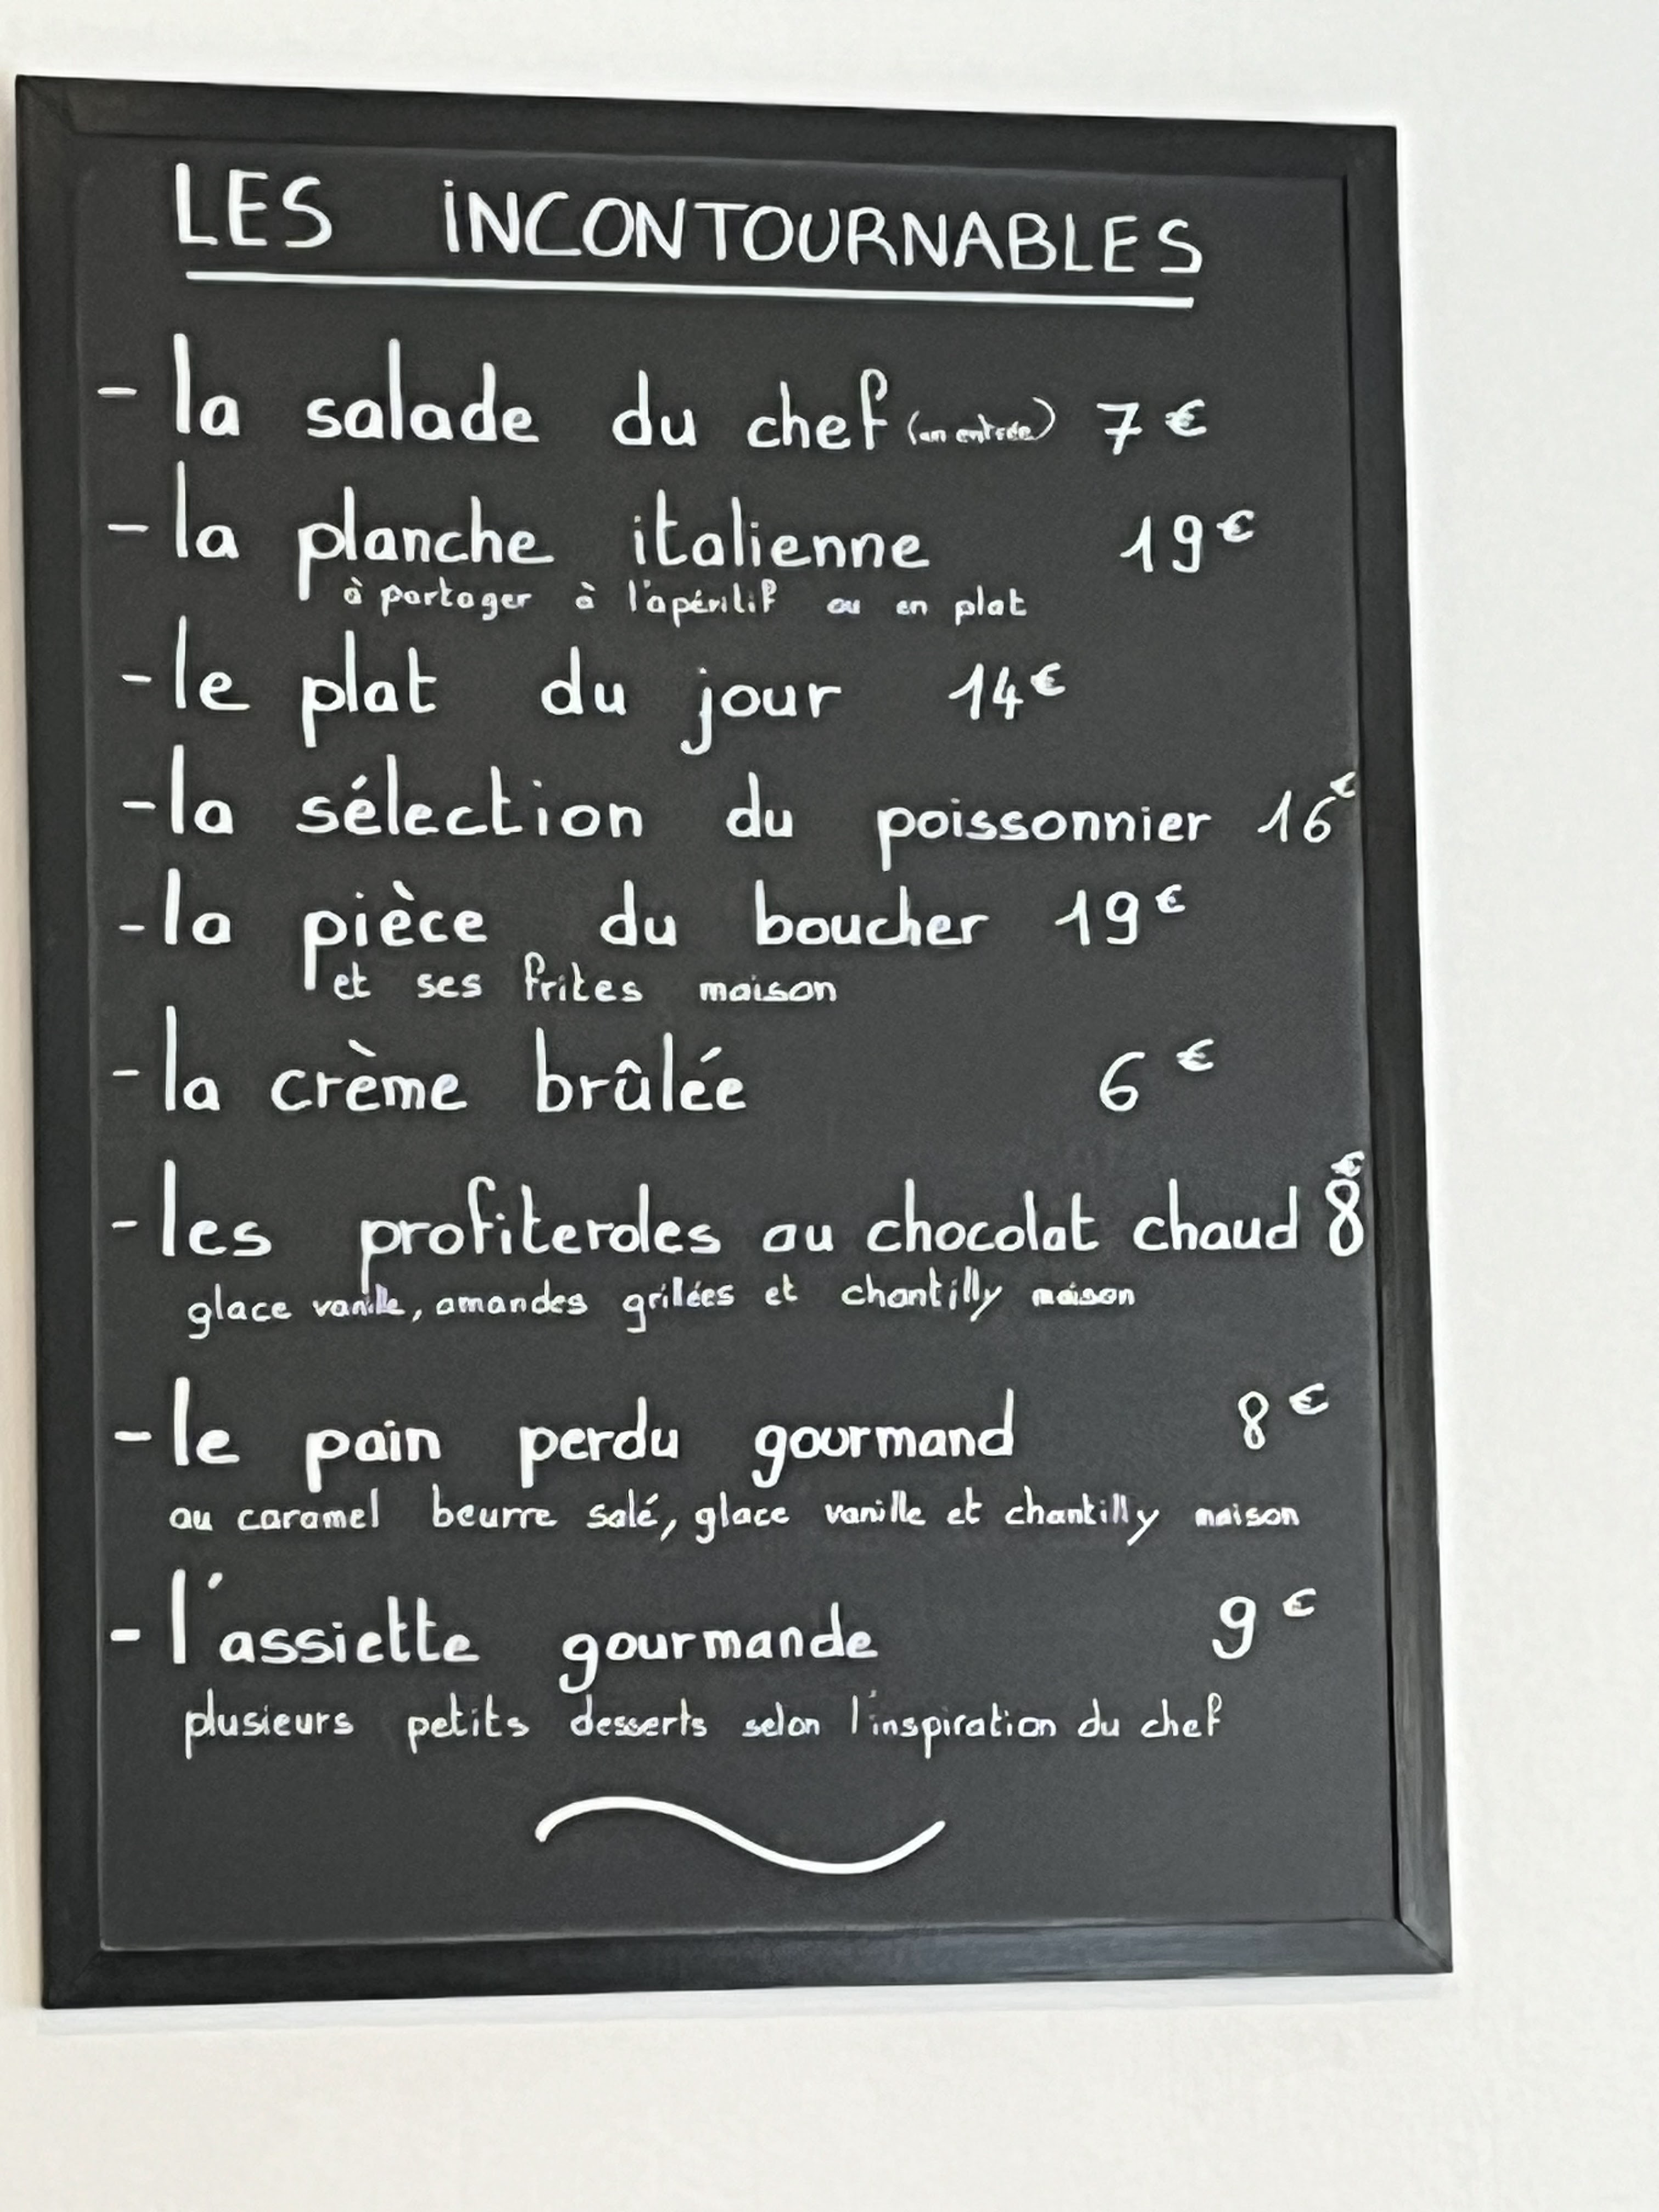 LES iNCONTOURNABLES
- la salade du chef (en entrée) 7 €
- la planche italienne 19 €
à partager à l'apéritif ou en plat
- le plat du jour 14 €
- la sélection du poissonnier 16 €
- la pièce du boucher 19 €
et ses frites maison
- la crème brûlée 6 €
- les profiteroles au chocolat chaud 8 €
glace vanille, amandes grillées et chantilly maison
- le pain perdu gourmand 8 €
au caramel beurre salé, glace vanille et chantilly maison
- l'assiette gourmande 9 €
plusieurs petits desserts selon l'inspiration du chef